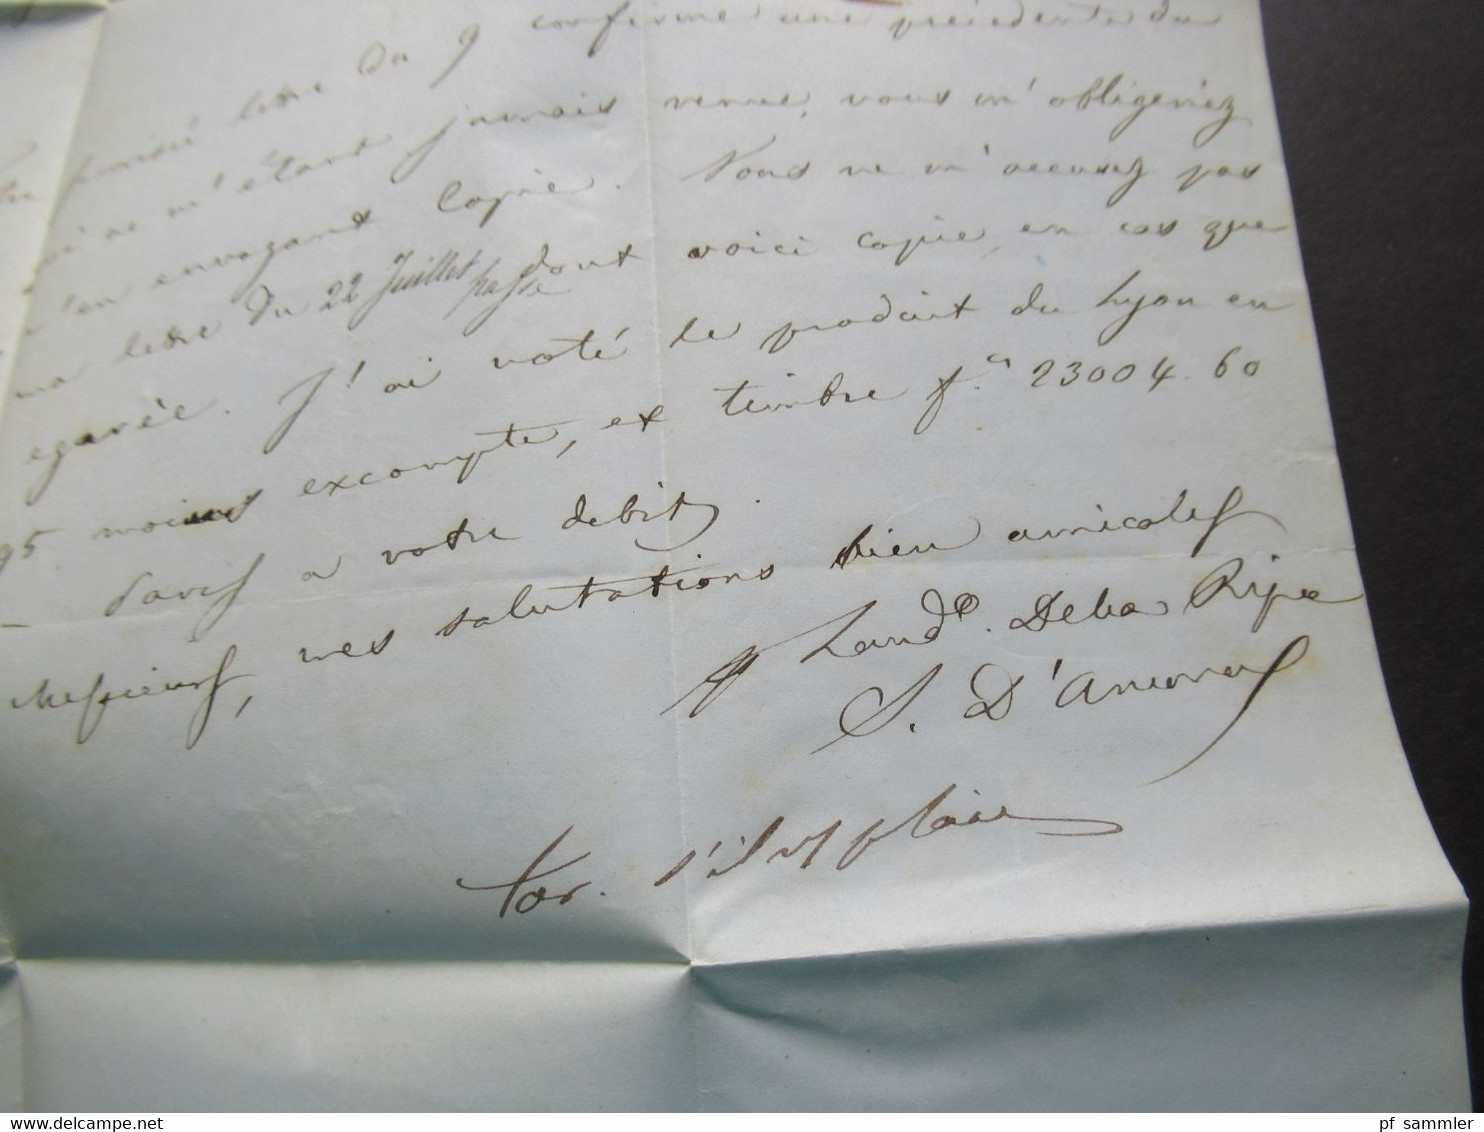 lettre du 9 confirme une précédente du
ne m'étant jamais venue, vous m'obligeriez
m'en envoyant Copie. Vous ne m'accusez pas
ma lettre du 22 Juillet passé dont voici copie, en cas que
egarée. J'ai noté le produit du Lyon en
95 moins excompte, et timbre f.cs 23004.60
Paris a votre debit.
Messieurs, mes salutations bien amicales
Land.e Deba Ripe
S. D'
tor. s'il v plait
pf_sammler